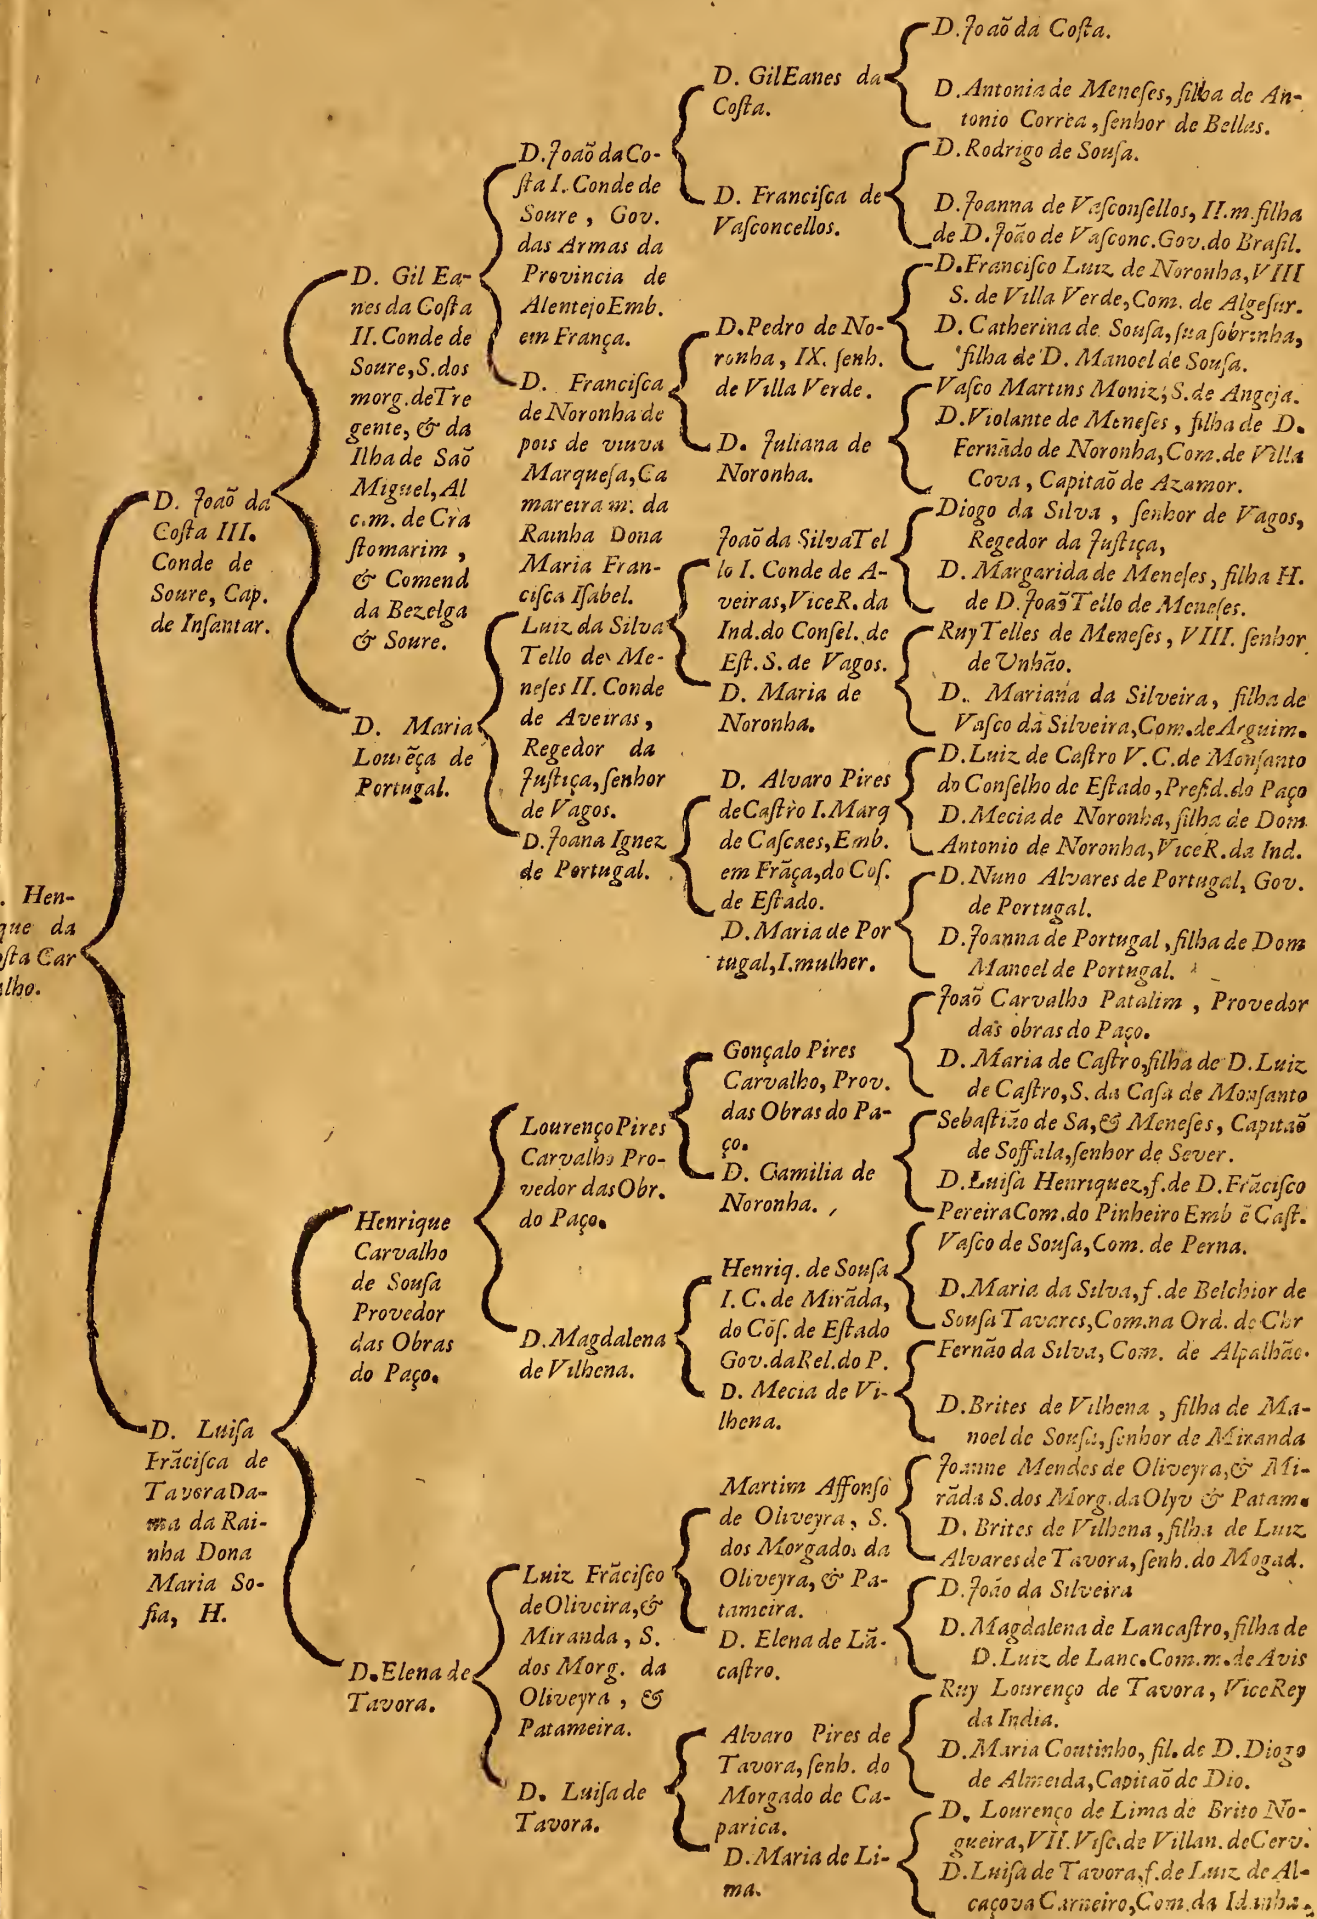 . Hen-
que da
oſta Car
alho.
D. Joaõ da
Coſta III.
Conde de
Soure, Cap.
de Infantar.
D. Luiſa
Frãciſca de
Tavora Da-
ma da Rai-
nha Dona
Maria So-
fia, H.
D. Gil Ea-
nes da Coſta
II. Conde de
Soure, S. dos
morg. de Tre
gente, & da
Ilha de Saõ
Miguel, Al
c. m. de Cra
ſtomarim ,
& Comend
da Bezelga
& Soure.
D. Maria
Lourẽça de
Portugal.
Henrique
Carvalho
de Souſa
Provedor
das Obras
do Paço.
D. Elena de
Tavora.
D. Joaõ da Co-
ſta I. Conde de
Soure , Gov.
das Armas da
Provincia de
Alentejo Emb.
em França.
D. Franciſca
de Noronha de
pois de viuva
Marqueſa, Ca
mareira m. da
Rainha Dona
Maria Fran-
ciſca Iſabel.
Luiz da Silva
Tello de Me-
neſes II. Conde
de Aveiras ,
Regedor da
Juſtiça, ſenhor
de Vagos.
D. Joana Ignez
de Portugal.
Lourenço Pires
Carvalho Pro-
vedor das Obr.
do Paço.
D. Magdalena
de Vilhena.
Luiz Frãciſco
de Oliveira, &
Miranda , S.
dos Morg. da
Oliveyra , &
Patameira.
D. Luiſa de
Tavora.
D. Gil Eanes da
Coſta.
D. Franciſca de
Vaſconcellos.
D. Pedro de No-
ronha , IX. ſenh.
de Villa Verde .
D. Juliana de
Noronha.
Joaõ da Silva Tel
lo I. Conde de A-
veiras, Vice R. da
Ind. do Conſel. de
Eſt. S. de Vagos.
D. Maria de
Noronha.
D. Alvaro Pires
de Caſtro I. Marq
de Caſcaes, Emb.
em Frãça, do Coſ.
de Eſtado.
D. Maria de Por
tugal, I. mulher.
Gonçalo Pires
Carvalho, Prov.
das Obras do Pa-
ço.
D. Camilia de
Noronha.
Henriq. de Souſa
I. C. de Mirãda,
do Cõſ. de Eſtado
Gov. da Rel. do P.
D. Mecia de Vi-
lhena.
Martim Affonſo
de Oliveyra , S.
dos Morgados da
Oliveyra, & Pa-
tameira.
D. Elena de Lã-
caſtro.
Alvaro Pires de
Tavora, ſenh. do
Morgado de Ca-
parica.
D. Maria de Li-
ma.
D. Joaõ da Coſta.
D. Antonia de Meneſes, filha de An-
tonio Correa , ſenhor de Bellas.
D. Rodrigo de Souſa.
D. Joanna de Vaſconſellos, II. m. filha
de D. Joaõ de Vaſconc. Gov. do Braſil.
D. Franciſco Luiz de Noronha, VIII
S. de Villa Verde, Com. de Algeſur.
D. Catherina de Souſa, ſua ſobrinha,
filha de D. Manoel de Souſa.
Vaſco Martins Moniz, S. de Angeja.
D. Violante de Meneſes , filha de D.
Fernãdo de Noronha, Com. de Villa
Cova , Capitaõ de Azamor.
Diogo da Silva , ſenhor de Vagos,
Regedor da Juſtiça,
D. Margarida de Meneſes , filha H.
de D. Joaõ Tello de Meneſes.
Ruy Telles de Meneſes , VIII. ſenhor
de Unhão.
D. Mariana da Silveira , filha de
Vaſco da Silveira, Com. de Arguim.
D. Luiz de Caſtro V. C. de Monſanto
do Conſelho de Eſtado , Preſid. do Paço
D. Mecia de Noronha, filha de Dom
Antonio de Noronha, Vice R. da Ind.
D. Nuno Alvares de Portugal, Gov.
de Portugal.
D. Joanna de Portugal , filha de Dom
Manoel de Portugal.
Joaõ Carvalho Patalim , Provedor
das obras do Paço.
D. Maria de Caſtro, filha de D. Luiz
de Caſtro, S. da Caſa de Monſanto
Sebaſtião de Sa, & Meneſes , Capitaõ
de Soffala, ſenhor de Sever.
D. Luiſa Henriquez, f. de D. Frãciſco
Pereira Com. do Pinheiro Emb ẽ Caſt.
Vaſco de Souſa, Com. de Perna.
D. Maria da Silva, f. de Belchior de
Souſa Tavares, Com. na Ord. de Chr
Fernão da Silva, Com. de Alpalhão.
D. Brites de Vilhena , filha de Ma-
noel de Souſa, ſenhor de Miranda
Joanne Mendes de Oliveyra, & Mi-
rãda S. dos Morg. da Olyv & Patam.
D. Brites de Vilhena , filha de Luiz
Alvares de Tavora, ſenh. do Mogad.
D. João da Silveira
D. Magdalena de Lancaſtro, filha de
D. Luiz de Lanc. Com. m. de Avis
Ruy Lourenço de Tavora , Vice Rey
da India.
D. Maria Coutinho, fil. de D. Diogo
de Almeida, Capitaõ de Dio.
D. Lourenço de Lima de Brito No-
gueira, VII. Viſc. de Villan. de Cerv.
D. Luiſa de Tavora, f. de Luiz de Al-
caçova Carneiro, Com. da Idanha.